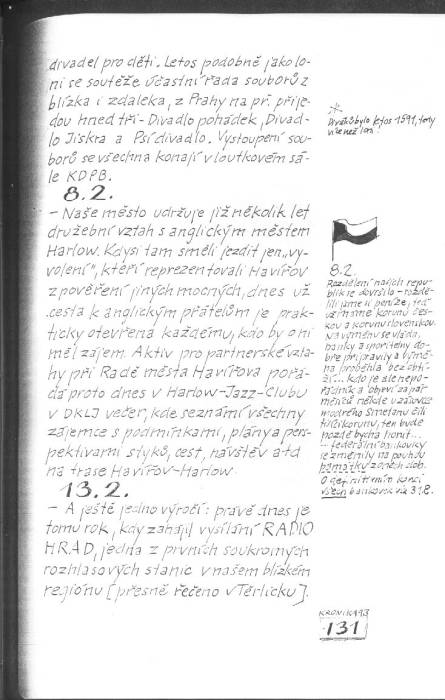 divadel pro děti. Letos podobně jako lo-
ni se soutěže účastní řada souborů z
blízka i zdaleka, z Prahy na př. přije-
dou hned tři - Divadlo pohádek, Divad-
lo Jiskra a Psí divadlo. Vystoupení sou-
borů se všechna konají v loutkovém sá-
le KDPB.
8.2.
- Naše město udržuje již několik let
družební vztah s anglickým městem
Harlow. Kdysi tam směli jezdit jen „vy-
volení", kteří reprezentovali Havířov
z pověření jiných mocných, dnes už
cesta k anglickým přátelům je prak-
ticky otevřena každému, kdo by o ni
měl zájem. Aktiv pro partnerské vzta-
hy při Radě města Havířova pořá-
dá proto dnes v Harlow-Jazz-Clubu
v DKLJ večer, kde seznámí všechny
zájemce s podmínkami, plány a pers-
pektivami styků, cest, návštěv a td
na trase Havířov-Harlow.
13.2.
- A ještě jedno výročí: právě dnes je
tomu rok, kdy zahájil vysílání RADIO
HRAD, jedna z prvních soukromých
rozhlasových stanic v našem blízkém
regiónu [přesně řečeno v Těrlicku].
*
Diváků bylo letos 1591, tedy
více než loni!
8.2.
Rozdělení našich repu-
blik se dovršilo - rozdě-
lili jsme si peníze, teď
už máme korunu čes-
kou a korunu slovenskou.
Na výměnu se vláda,
banky a spořitelny do-
bře připravily a výmě-
na proběhla bez obtí-
ží... kdo je ale nepo-
řádník a objeví za pár
měsíců někde v zásuvce
modrého Smetanu čili
tisícikorunu, ten bude
pozdě bycha honit...
... federální bankovky
se změnily na pouhou
památku zašlých dob.
všech bankovek viz 31.8.
KRONIKA 93
131